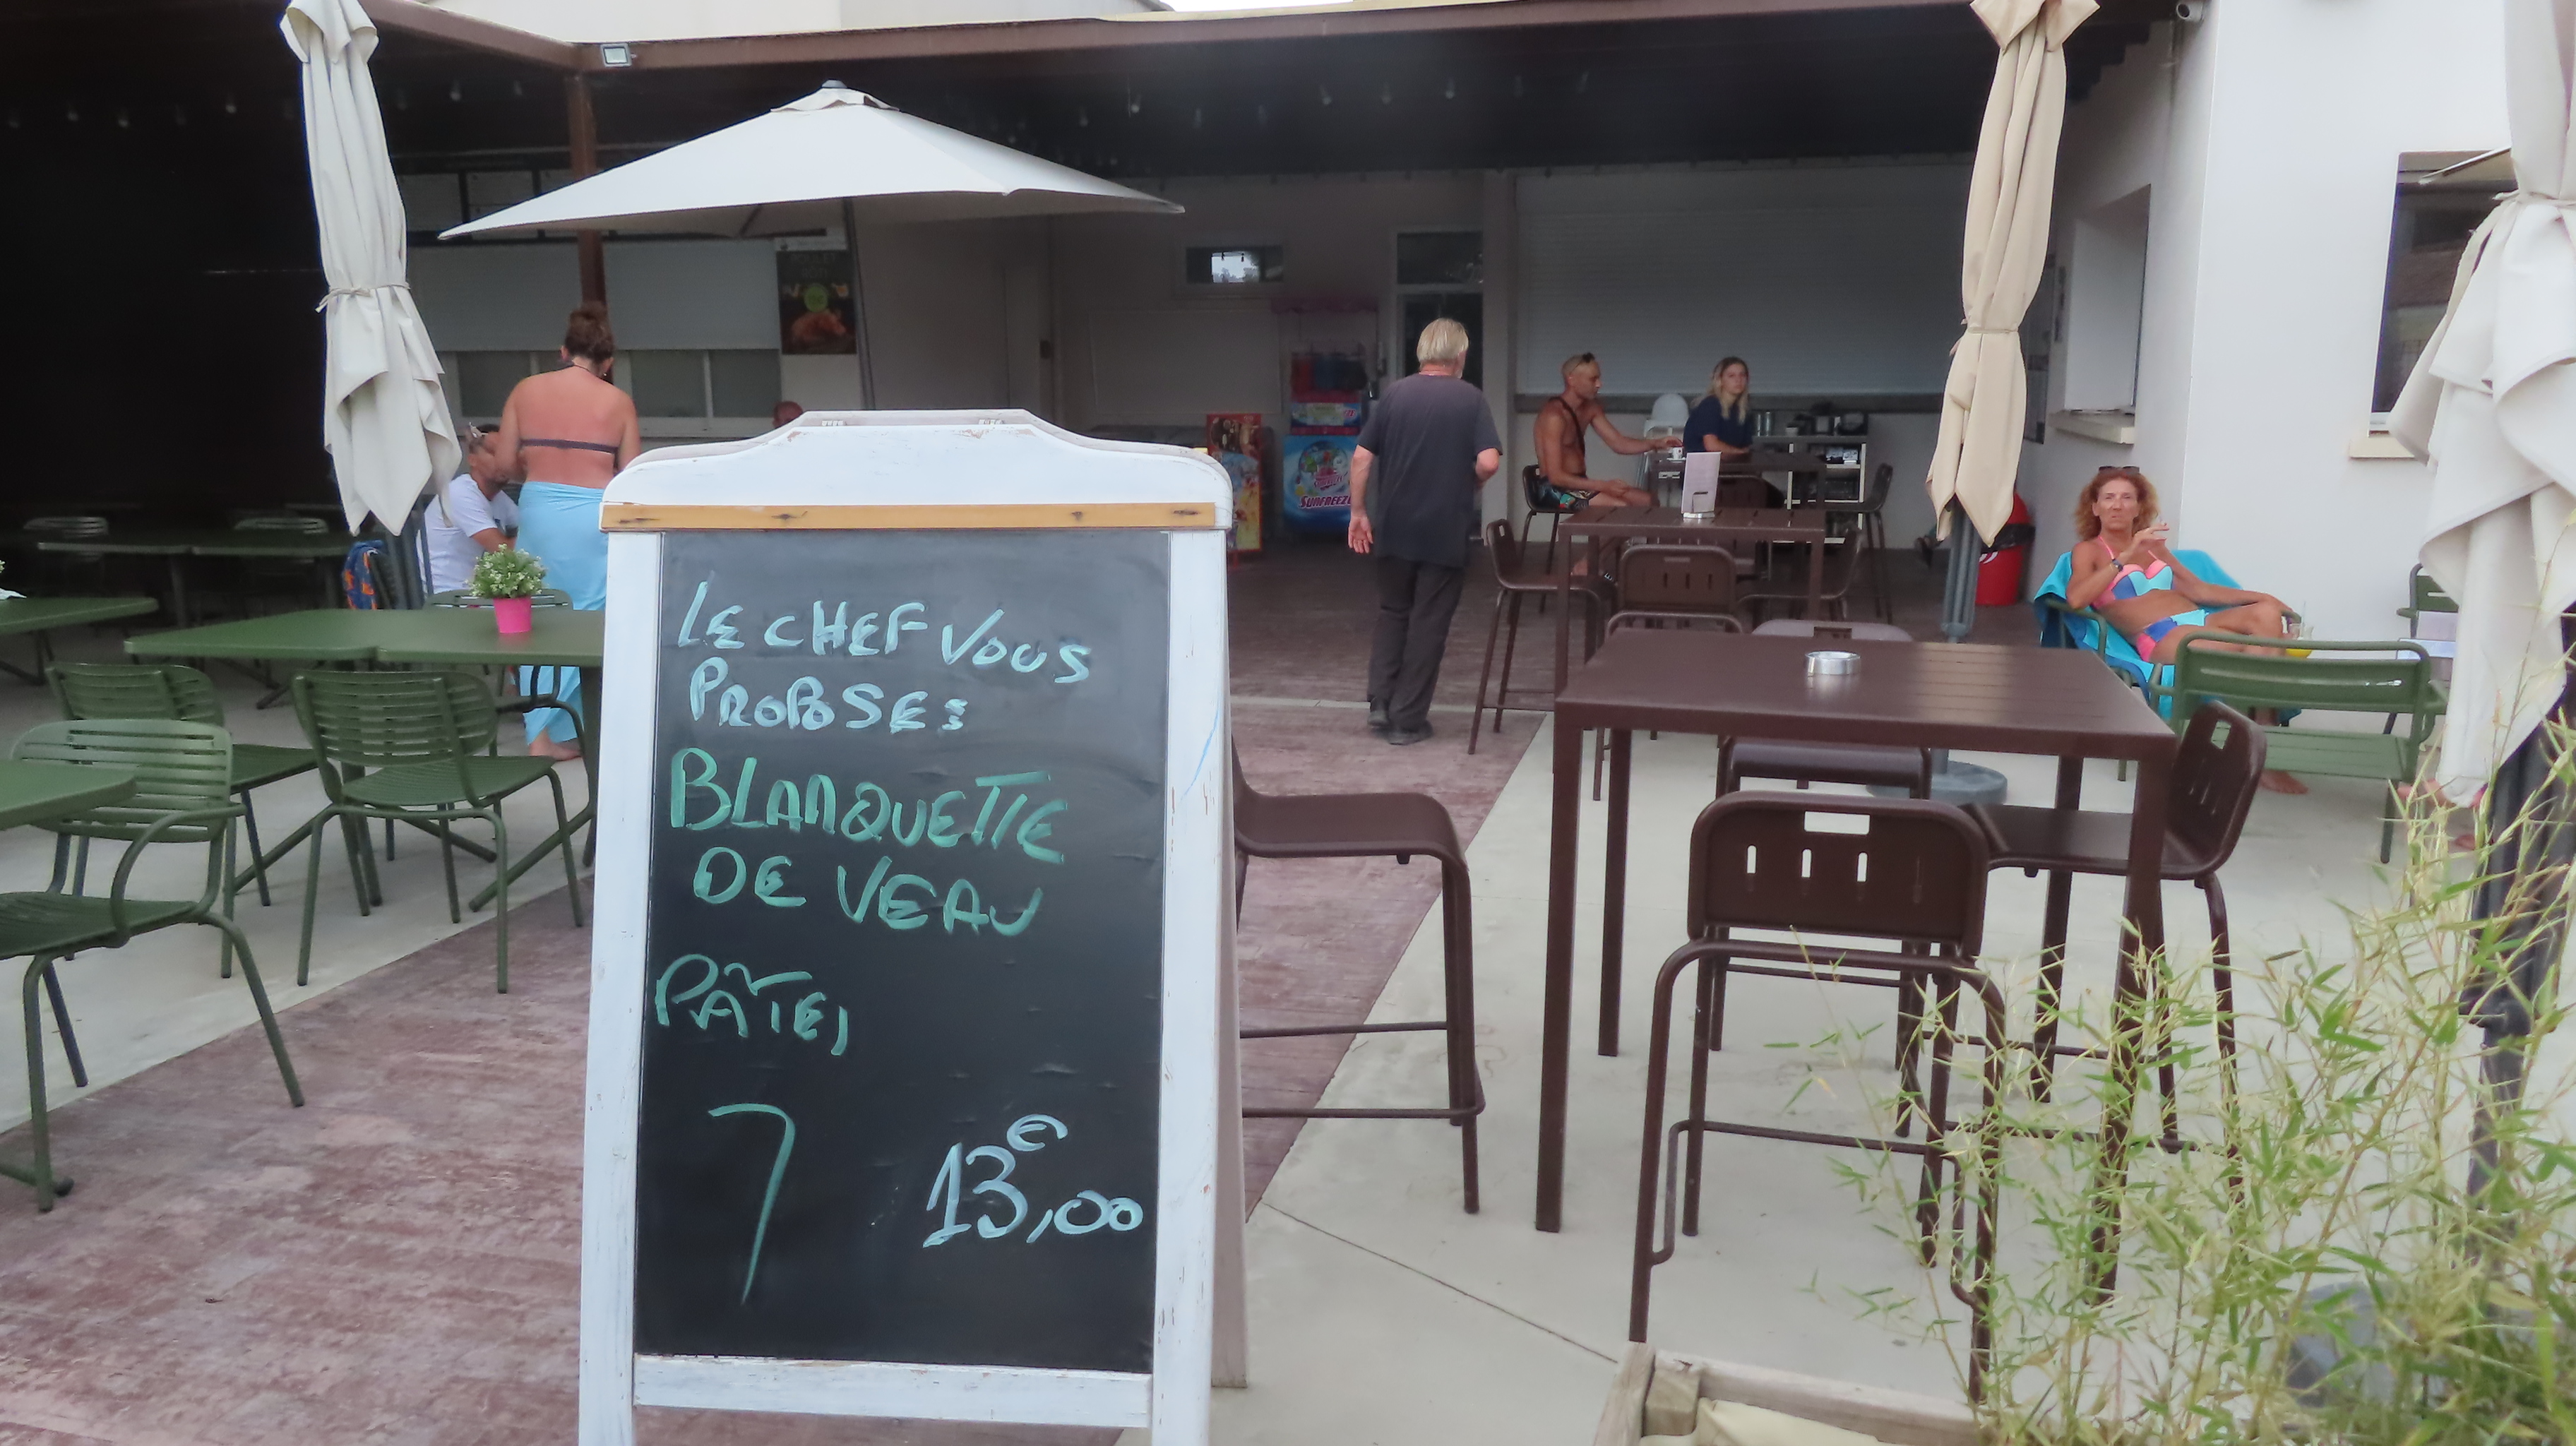 LE CHEF VOUS
PROPOSE:
BLANQUETTE
DE VEAU
PÂTES
7
13,00€
POULET
RÔTI
SUNFREEZE